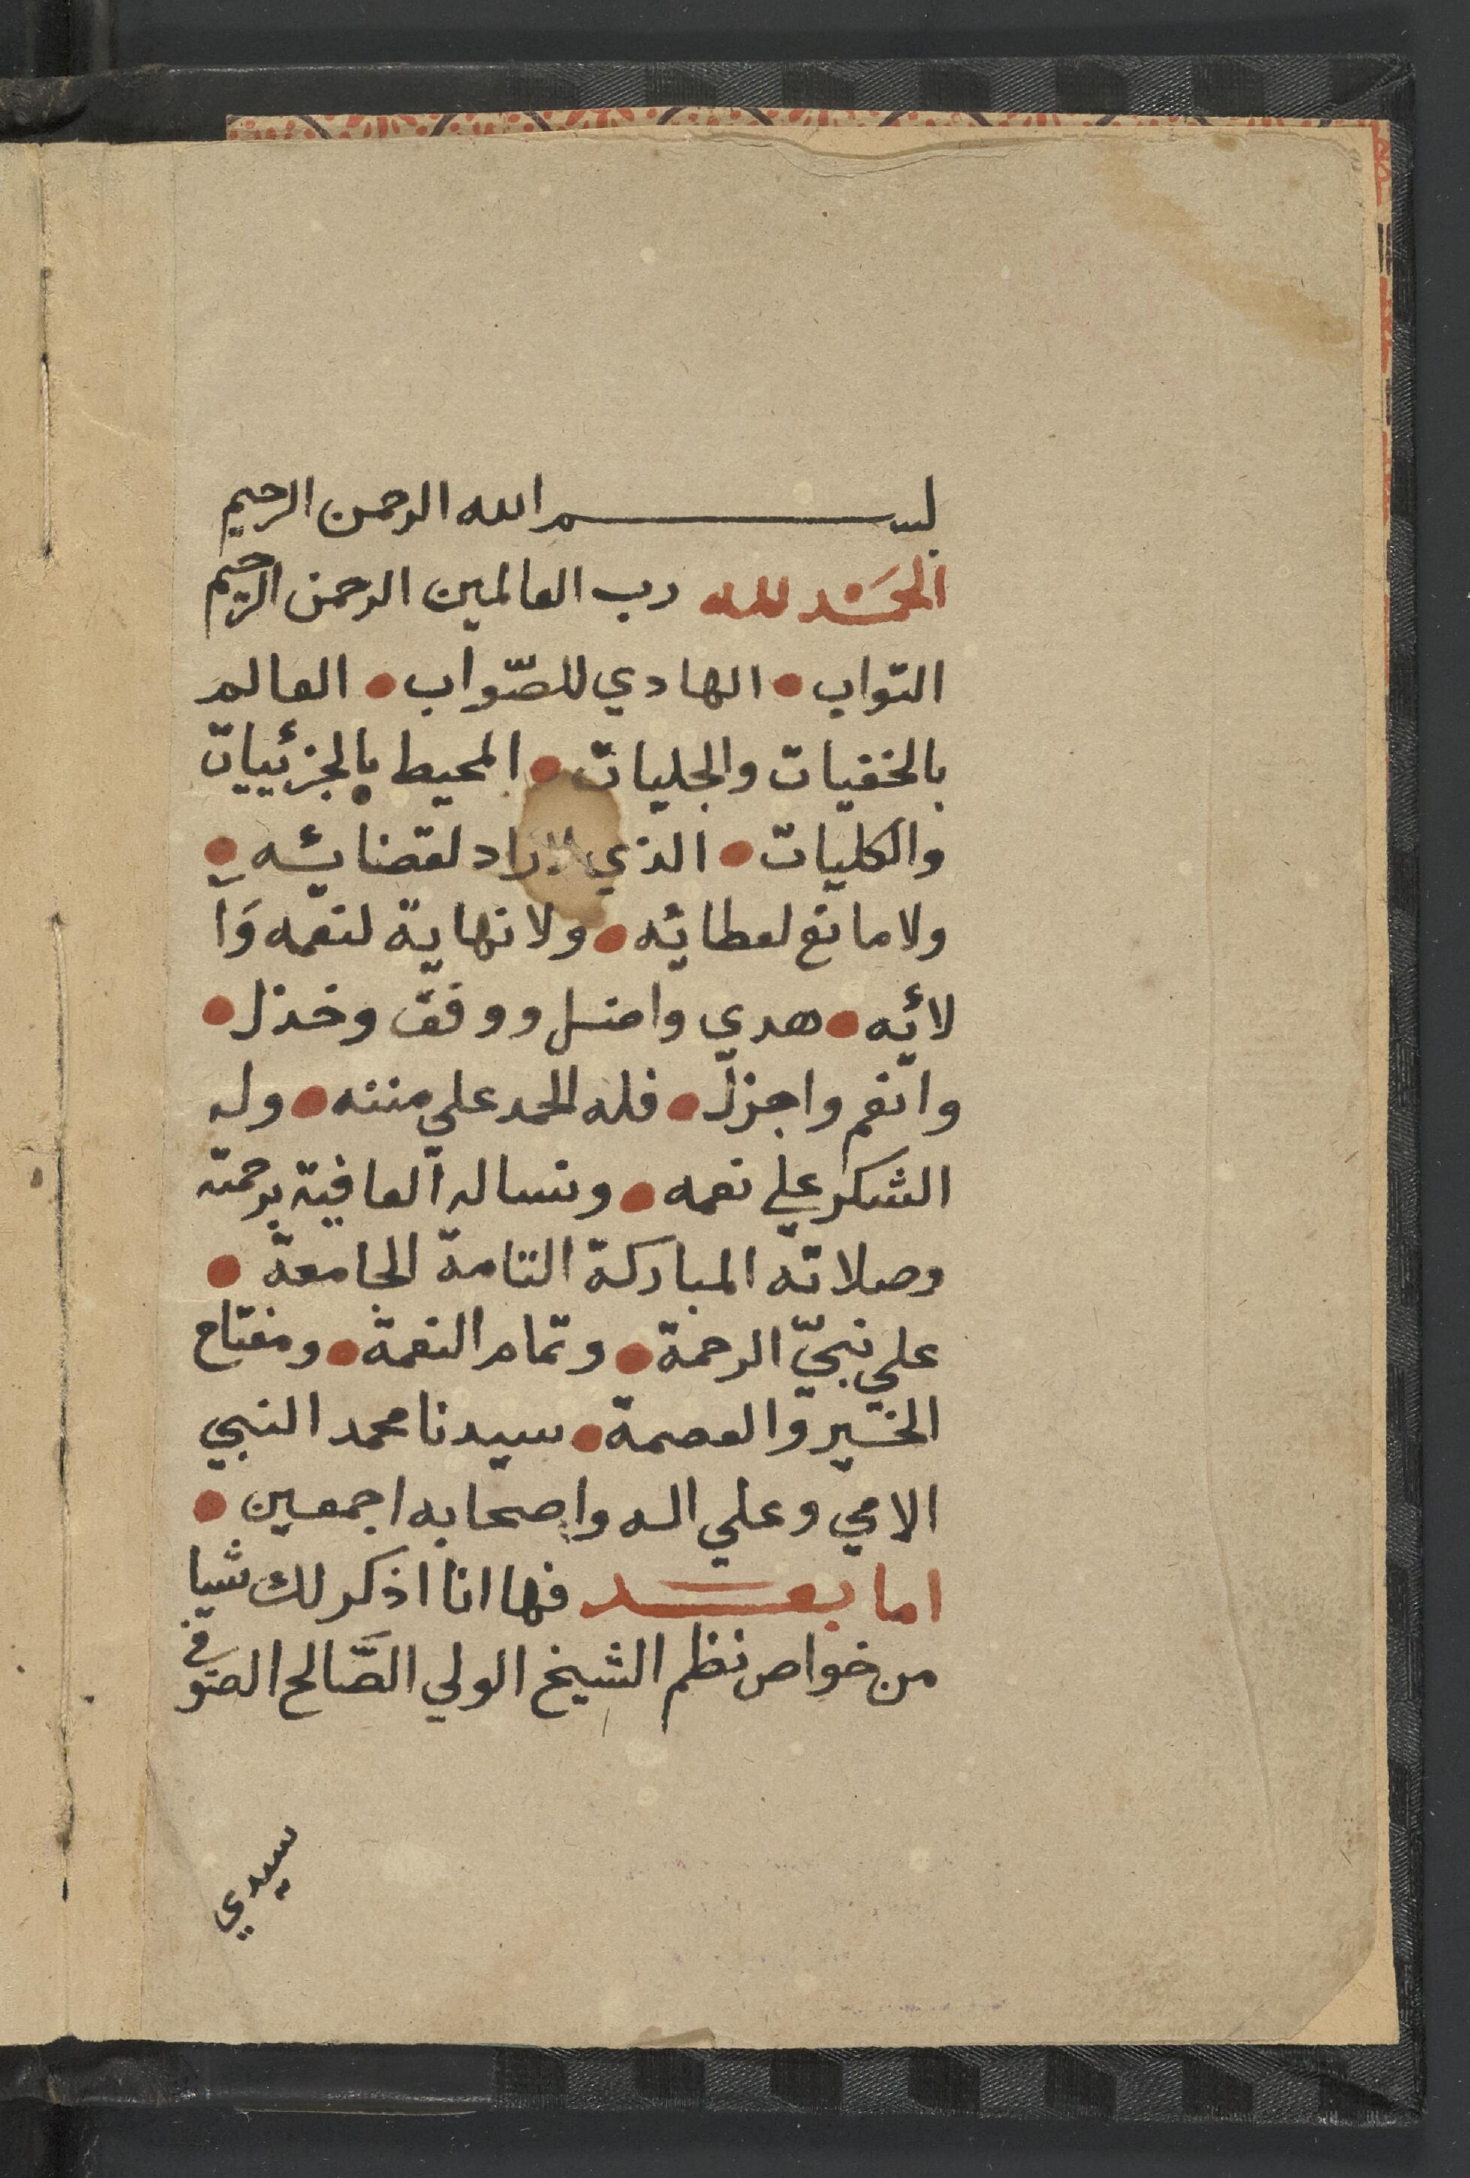 بسم الله الرحمن الرحيم
الحمد لله رب العالمين الرحمن الرحيم
التواب • الهادي للصّواب • العالم
بالخفيات والجليات • المحيط بالجزئييات
والكليات • الذي لا راد لقضائه •
ولا مانع لعطائه • ولا نهاية لنعمه وَآ
لائه • هدي واضل ووفق وخذل •
وانعم واجزل • فله الحمد علي مننه • وله
الشكر علي نعمه • ونساله العافية برحمته
وصلاته المباركة التامة الجامعة •
علي نبيّ الرحمة • وتمام النعمة • ومفتاح
الخير والعصمة • سيدنا محمد النبي
الامي وعلي اله واصحابه اجمعين •
اما بعد فها انا اذكر لك شيا
من خواص نظم الشيخ الولي الصَّالح الصوفي
سيدي